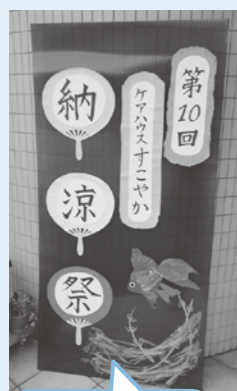 第10回
ケアハウスすこやか
納涼祭